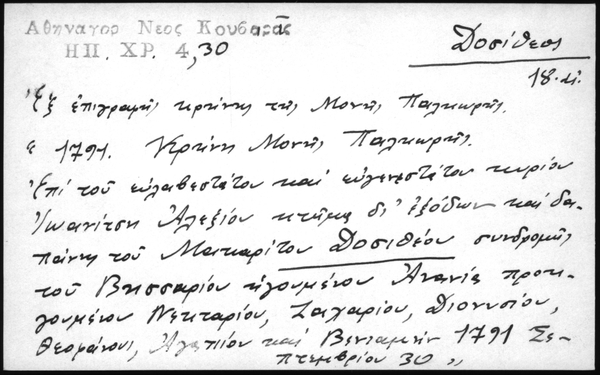 Ἀθηναγορ Νεος Κουβαρᾶς
ΗΠ. ΧΡ. 4,30
Δοσίθεος
18-αι.
Ἐξ ἐπιγραφῆς κρήνης τῆς Μονῆς Παλιωρῆς.
ε 1791. Κρήνη Μονῆς Παλιωρῆς.
Ἐπί τοῦ εὐλαβεστάτου καί εὐγενεστάτου κυρίου
Ἰωανίτση Ἀλεξίου κτῆμα δι' ἐξόδων καί δα-
πάνης τοῦ Μακαρίτου Δοσιθέου συνδρομῆς
τοῦ Βησσαρίου ἡγουμένου Ἀνανία προη-
γουμένου Νεκταρίου, Ζαχαρίου, Διονυσίου,
Θεοφάνους, Ἀγαπίου καί Βενιαμήν 1791 Σε-
πτεμβρίου 30 "